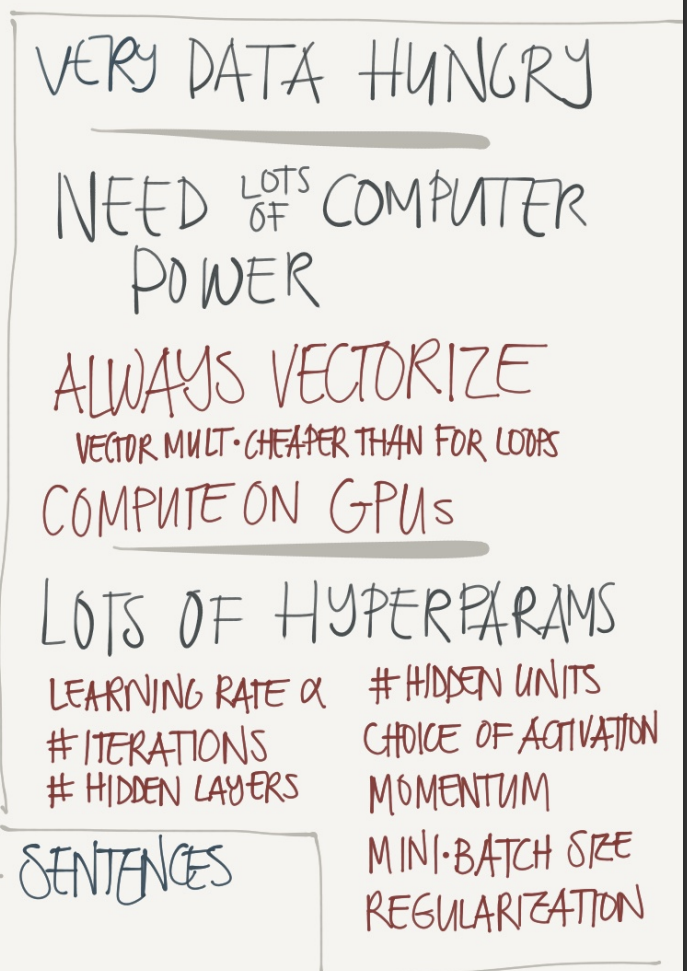 VERY DATA HUNGRY
NEED LOTS OF COMPUTER
POWER
ALWAYS VECTORIZE
VECTOR MULT · CHEAPER THAN FOR LOOPS
COMPUTE ON GPUs
LOTS OF HYPERPARAMS
LEARNING RATE α
# ITERATIONS
# HIDDEN LAYERS
# HIDDEN UNITS
CHOICE OF ACTIVATION
MOMENTUM
MINI·BATCH SIZE
REGULARIZATION
SENTENCES